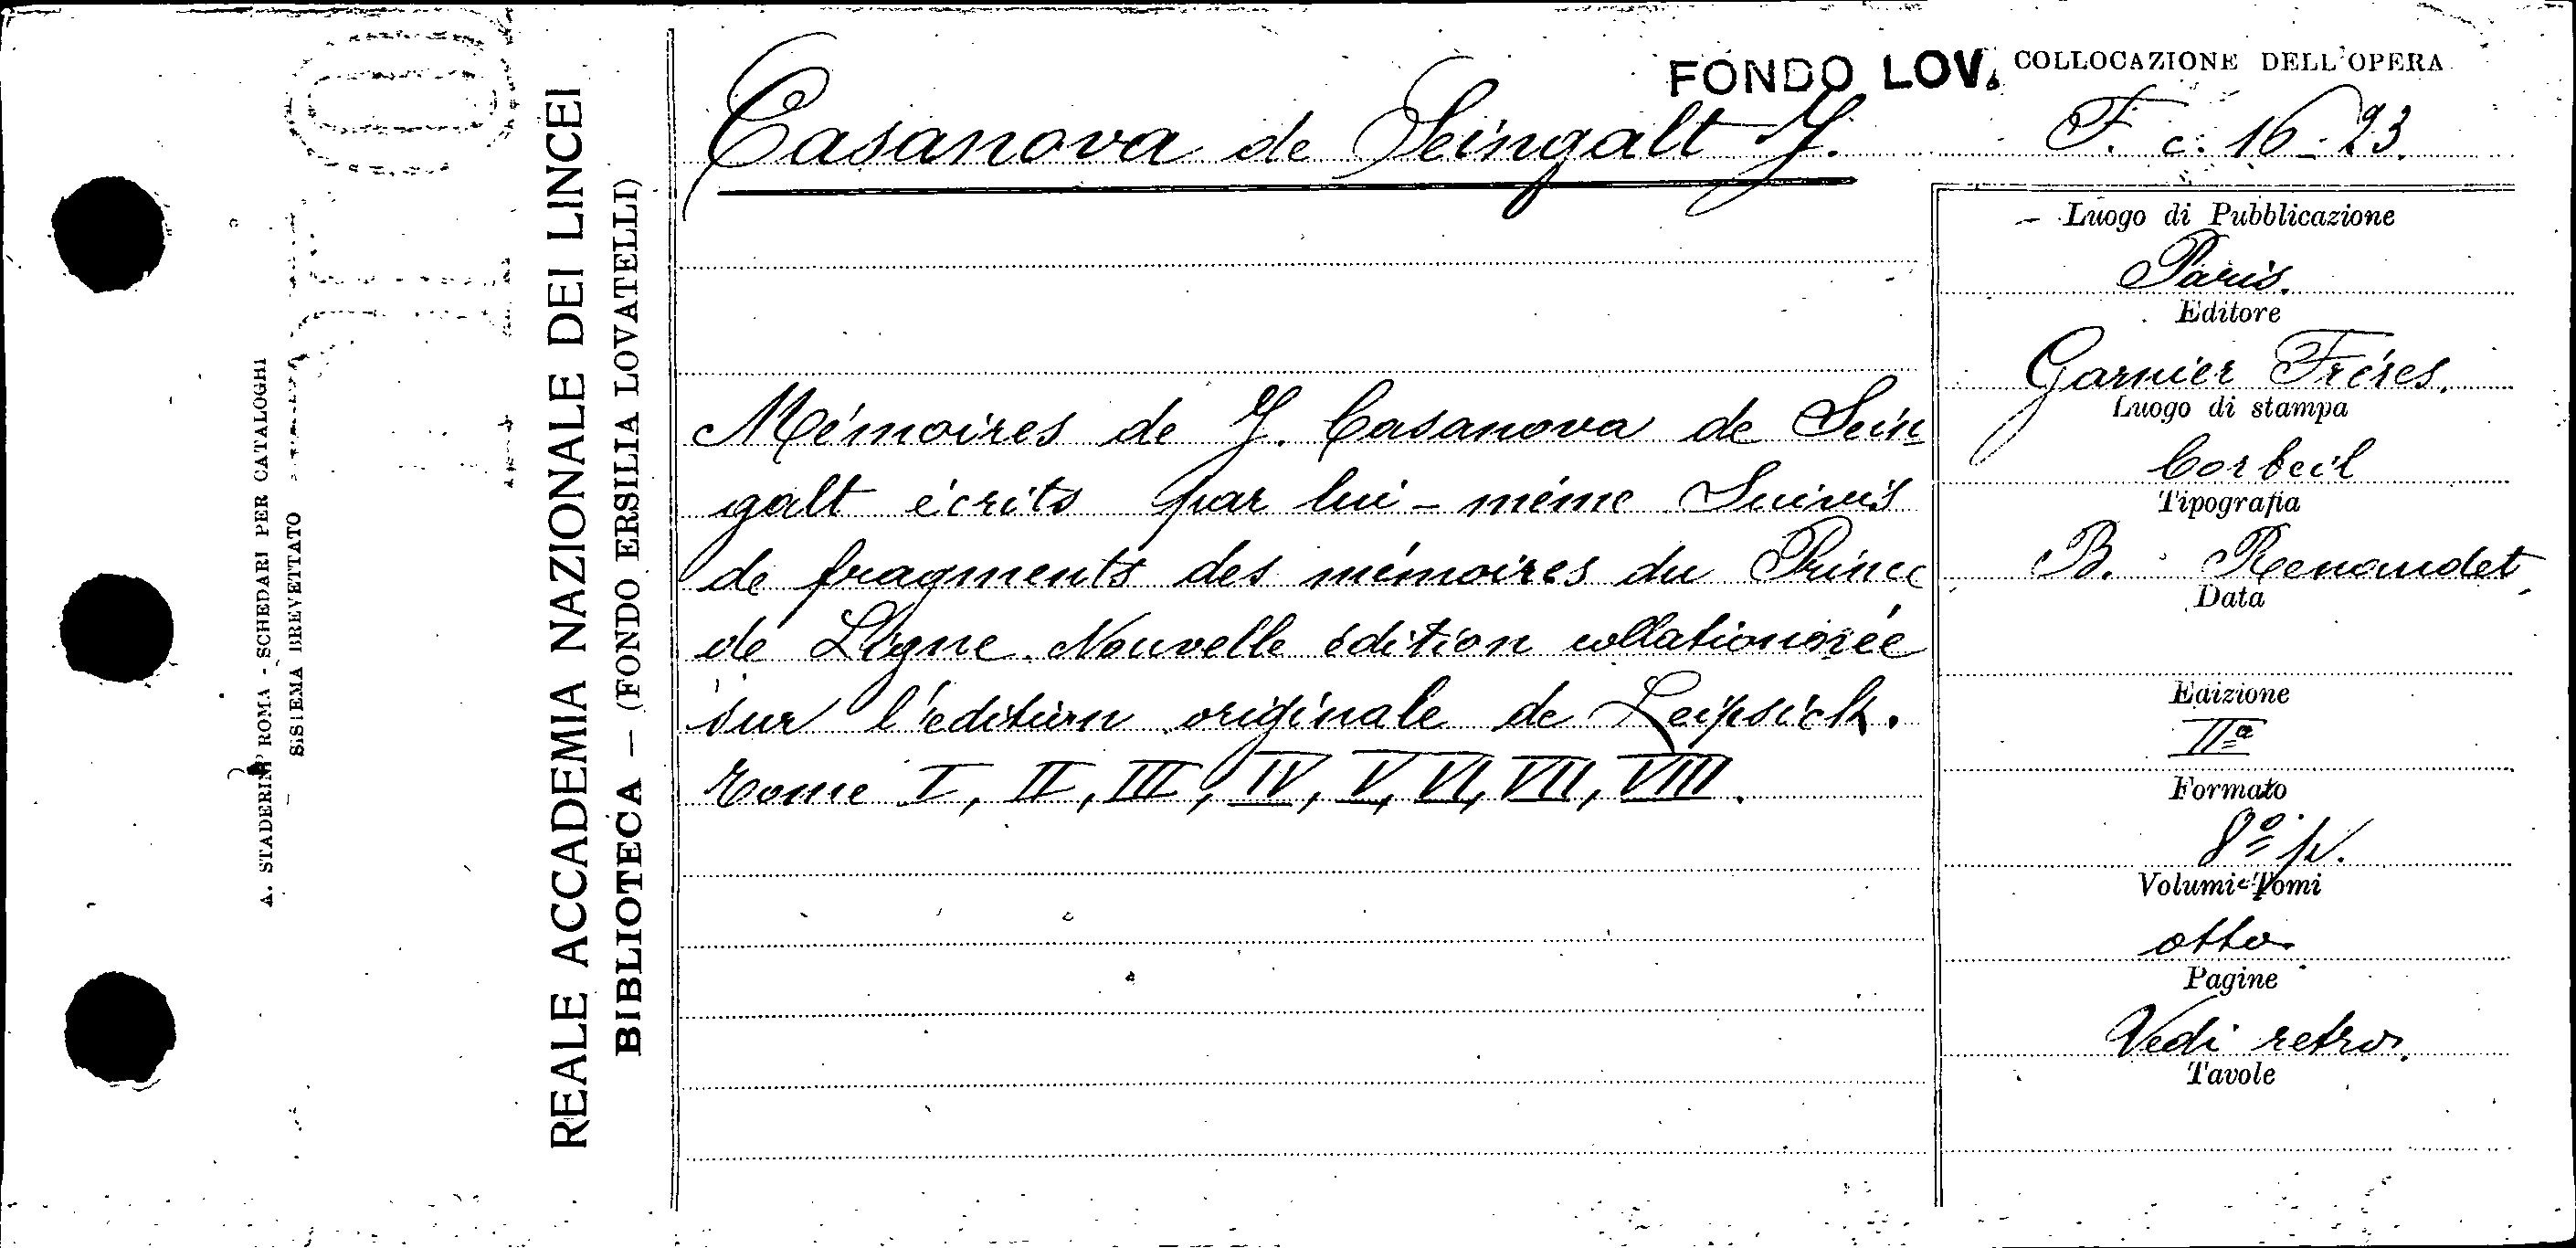 FONDO LOV. COLLOCAZIONE DELL'OPERA
Casanova de Seingalt J.
F. c. 16-23.
Mémoires de J. Casanova de Sein
galt écrits par lui-même Suivis
de fragments des mémoires du Prince
de Ligne. Nouvelle édition collationnée
sur l'édition originale de Leipsick.
Tome I, II, III, IV, V, VI, VII, VIII.
Luogo di Pubblicazione
Paris.
Editore
Garnier Fréres.
Luogo di stampa
Corbeil
Tipografia
B. Renaudet
Data
Edizione
IIª
Formato
8º p.
Volumi-Tomi
otto.
Pagine
Vedi retro.
Tavole
REALE ACCADEMIA NAZIONALE DEI LINCEI
BIBLIOTECA — (FONDO ERSILIA LOVATELLI)
A. STADERINI ROMA - SCHEDARI PER CATALOGHI
SISTEMA BREVETTATO